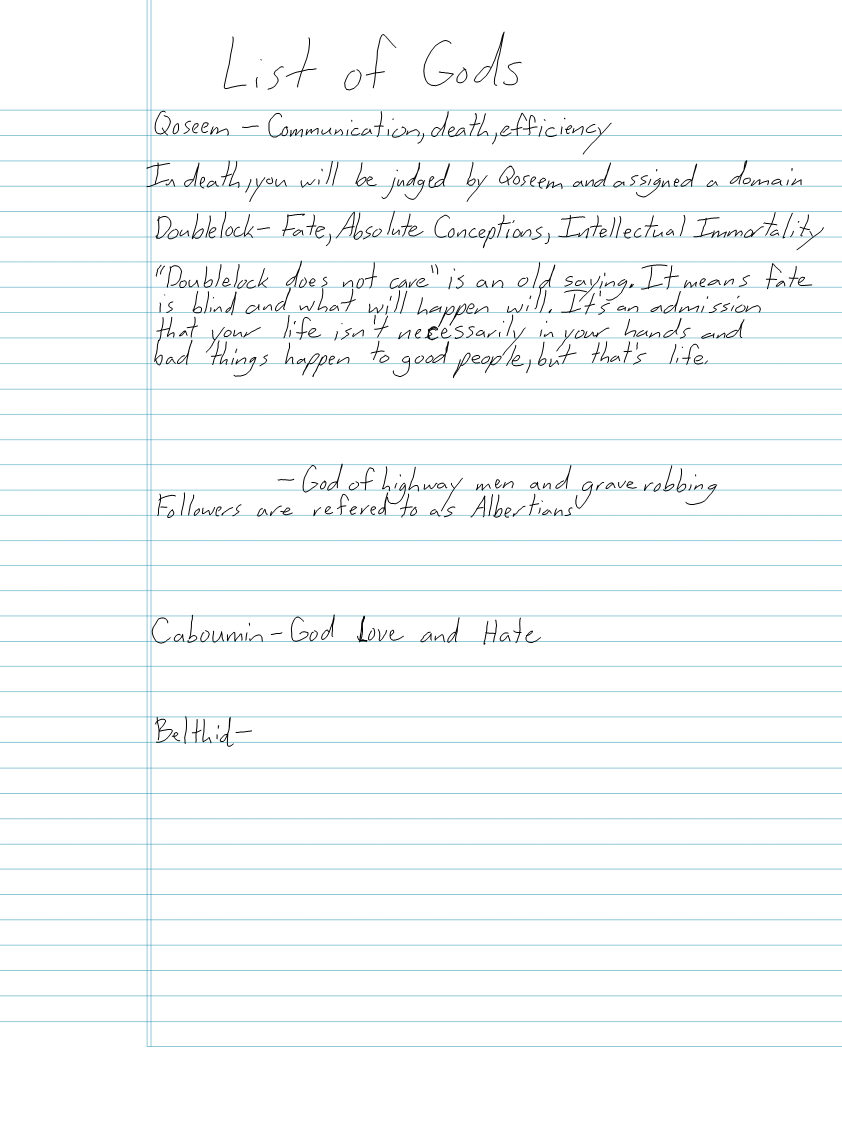 List of Gods
Qoseem - Communication, death, efficiency
In death, you will be judged by Qoseem and assigned a domain
Doublelock- Fate, Absolute Conceptions, Intellectual Immortality
"Doublelock does not care" is an old saying. It means fate
is blind and what will happen will. It's an admission
that your life isn't necessarily in your hands and
bad things happen to good people, but that's life.
- God of highway men and grave robbing
Followers are refered to as Albertians
Caboumin - God Love and Hate
Belthid-